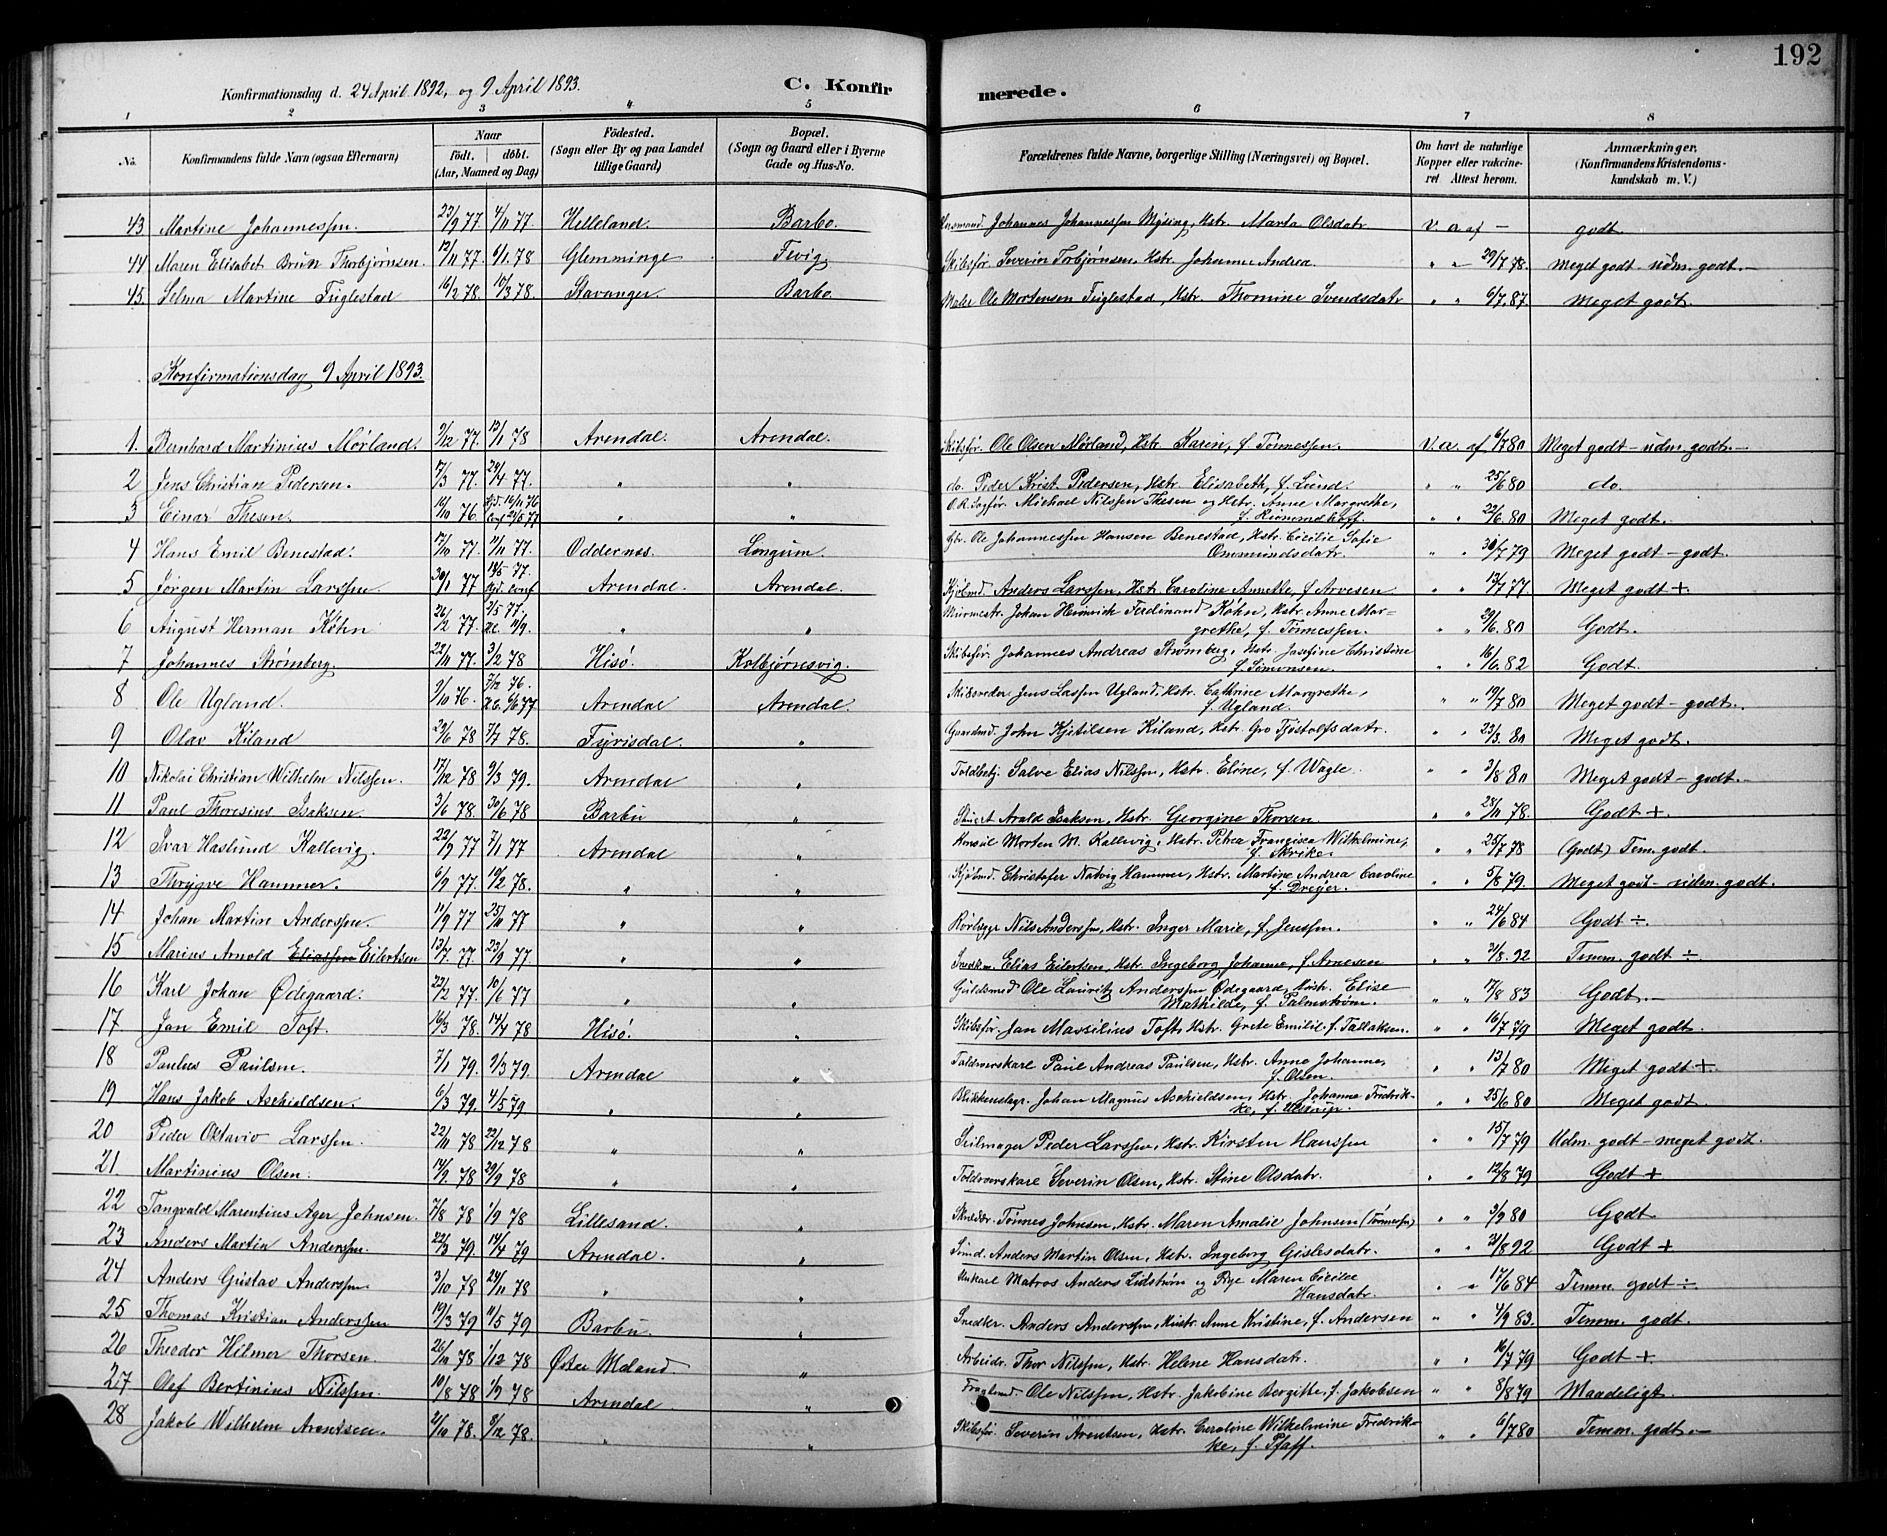 192
Konfirmationsdag d. 24 April 1892, og 9 April 1893. C. Konfir merede.
1 2 3 4 5 6 7 8
No. Konfirmandens fulde Navn (ogsaa Efternavn) Naar födt. döbt. (Aar, Maaned og Dag) Födested. (Sogn eller By og paa Landet tillige Gaard) Bopæl. (Sogn og Gaard eller i Byerne Gade og Hus-No. Forældrenes fulde Navne, borgerlige Stilling (Næringsvei) og Bopæl. Om havt de naturlige Kopper eller vakcineret Attest herom. Anmærkninger. (Konfirmandens Kristendomskundskab m. V.)
43 Martine Johannessen 23/9 77 4/11 77 Helleland. Barbo. Husmand. Johannes Johannessen Mysing, Hstr. Marta Olsdatr V. a. af – godt.
44 Maren Elisabet Brun Thorbjørnsen. 12/11 77 6/1 78 Glemminge Fevig Skibsfør. Severin Torbjørnsen, Hstr. Johanne Andrea. " " 29/7 78. Meget godt – udm. godt. –
45 Selma Martine Fuglestad 16/2 78. 10/3 78. Stavanger. Barbo. Maler Ole Mortensen Fuglestad, Hstr. Thomine Svendsdatr " " 6/7. 87. Meget godt.
Konfirmationsdag 9 April 1893.
1. Bernhard Martinius Mørland. 9/12 77. 12/1 78 Arendal. Arendal. Skibsfør. Ole Olsen Mørland, Hstr. Karin, f. Tönnessen. V. a. af 6/7 80 Meget godt – udm. godt. –
2 Jens Christian Pedersen. 17/3 77. 24/4 77. " " do. Peder Krist. Pedersen, Hstr. Elisabeth, f. Lund. " " 25/6 80 do.
3 Einar Thesen. 16/10 76 Hjd. 16/11 76 Conf 21/5 77 " " O.R. Sagfør. Michael Nilssen Thesen og Hstr. Anne Margrethe, " " 22/6. 80 Meget godt.
4 Hans Emil Benestad. 17/10 77. 11/11 77. Oddernes. Longum. Gbr. Ole Johannessen Hansen Benestad, Hstr. Cicilie Sofie Ommundsdatr. " " 30/7 79 Meget godt – godt.
5 Jørgen Martin Larssen 30/1 77 14/5 77. Hjd. conf Arendal. Arendal. Kjøbmd Anders Larssen, Hstr. Caroline Annette, f. Arvesen " " 13/7 77. Meget godt +
6 August Herman Køhn 26/2 77. " " Muirmestr. Johan Heinrich Ferdinand Køhn, Hstr. Anne Margrethe, f. Tönnessen. " " 29/6. 80 Godt.
7 Johannes Strömberg. 22/11 77. 3/2 78 Hisö. Kolbjørnsvig. Skibsfør. Johannes Andreas Strömberg, Hstr. Josefine Christine f. Simonsen. " " 16/6. 82 Godt.
8 Ole Ugland. 9/10 76. 7/12 76. Arendal Arendal. Skibsreder Jens Lassen Ugland, Hstr. Cathrine Margrethe, f. Ugland. " " 19/7 80 Meget godt – godt.
9 Olav Kiland 29/6 78 7/7 78. Fyrisdal. " Gaardmd. John Kjetilsen Kiland, Hstr. Gro Tjöstolfsdatr. " " 23/3. 80 Meget godt.
10 Nikolai Christian Wilhelm Nilssen. 17/12 78 9/3 79. Arendal " Toldbetj. Salve Elias Nilssen, Hstr. Eline, f. Wagle. " " 3/8 80 Meget godt – godt.
11 Paul Thoresius Isaksen. 3/6 78. 30/6 78 Barbu " Stuert Arald Isaksen, Hstr. Georgine Thorsen. " " 28/11 78. Godt +
12 Ivar Haslund Kallevig. 22/9 77 7/1 77 Arendal " Konsul Morten M. Kallevig, Hstr. Petrea Francisca Wilhelmine, f. Skrike. " " 25/7 78 (Godt) Tem. godt.
13 Thrygve Hammer. 6/9 77. 19/2 78. " " Kjöbmd. Christofer Natvig Hammer, Hstr. Martine Andrea Caroline f. Dreyer. " " 5/8 79. Meget godt – udm. godt.
14 Johan Martin Anderssen. 11/9 77 25/11 77 " " Nils Anderssen, Hstr. Inger Marie, f. Jenssen. " " 24/6 84 Godt ÷
15 Marius Arnold Eliassen Eilertsen 13/7. 77 23/9 77 " " Snedkm. Elias Eilertsen, Hstr. Ingeborg Johanne, f. Arnesen " " 21/8. 92 Temm. godt ÷
16 Karl Johan Ødegaard. 22/2 77. 10/6 77 " " Guldsmed Ole Lauritz Anderssen Ødegaard, Hustr. Elise Mathilde, f. Palmström. " " 17/8 83 Godt. –
17 Jan Emil Toft. 16/3 78. 14/4 78 Hisö. " Skibsfør. Jan Massilius Toft, Hstr. Grete Emilie f. Tallaksen. " " 16/7 79 Meget godt.
18 Paulus Paulsen. 7/1 79 9/3 79. Arendal " Toldroerskarl Paul Andreas Paulsen, Hstr. Anne Johanne, f. Olsen. " " 13/7 80 Meget godt +
19 Hans Jakob Aschieldsen. 6/3 79. 4/5 79 " " Blikkenslagr. Johan Magnus Aschieldsen, Hstr. Johanna Fredrikke, f. Ustrup. " " 25/6 80 Meget godt.
20 Peder Oktavio Larssen. 22/11 78 22/12 78 " " Seilmager Peder Larssen, Hstr. Kirsten Hanssen " " 15/7 79 Udm. godt – meget godt.
21 Martinius Olsen. 14/9. 78 29/9 78 " " Toldroerskarl Severin Olsen, Hstr. Stine Olsdatr. " " 12/8 79 Godt +
22 Tangvald Marentius Ager Johnsen. 7/8 78 1/9 78 Lillesand. " Skredr. Tönnes Johnsen, Hstr. Maren Amalie Johnsen (Tönnesen) " " 3/9 80 Godt
23 Anders Martin Anderssen. 22/3 79 14/4 79 Arendal. " Sömd. Anders Martin Olsen, Hstr. Ingeborg Gislesdatr. " " 21/8 92 Godt +
24 Anders Gustav Anderssen 3/10 78 24/11 78 " " Unkarl Matros Anders Lidström og Pige Maren Cicilie Hansdatr. " " 17/6 84 Temm. godt ÷
25 Thomas Kristian Anderssen 19/3 79 11/5 79 Barbu. " Snedker. Anders Anderssen, Hustr. Anne Kristine, f. Andersen " " 4/9 83. Temm. godt.
26 Theodor Hilmer Thorsen. 26/10 78 1/12 78 Øster Moland. " Arbeidr. Thor Nilssen, Hstr. Helene Hansdatr. " " 16/7 79 Godt +
27 Olaf Bertinius Nilssen 10/8 78 1/9 78 Arendal. " Ole Nilssen, Hstr. Jakobine Bergitte, f. Jakobsen " " 8/8 79 Maadeligt.
28 Jakob Wilhelm Arentsen. 2/10 78. 8/12 78. " " Skibsför. Severin Arentsen, Hstr. Caroline Wilhelmine Fredrikke, f. Pfaff. " " 6/7 80 Temm. godt –